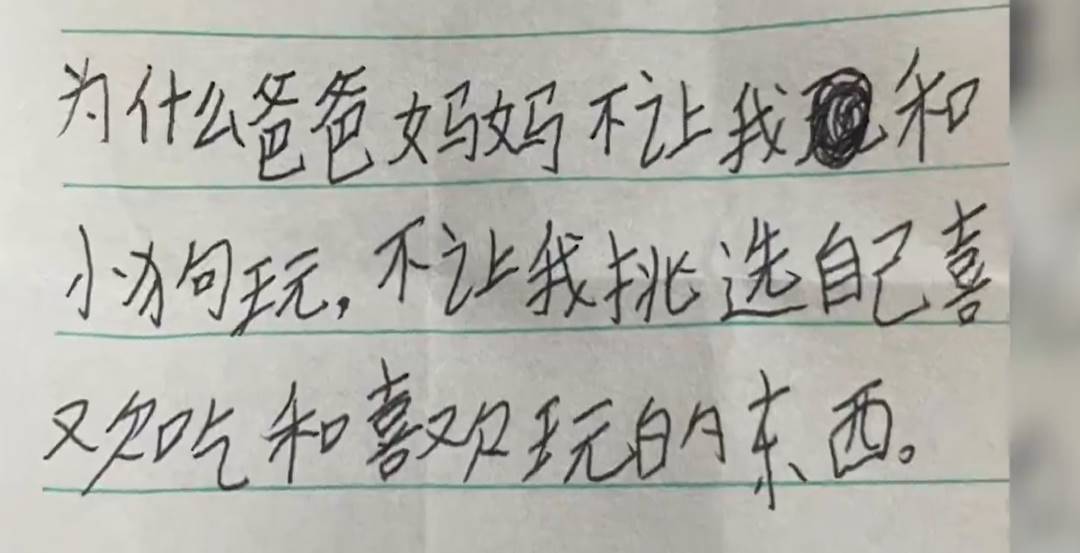 为什么爸爸妈妈不让我和
小狗玩，不让我挑选自己喜
欢吃和喜欢玩的东西。